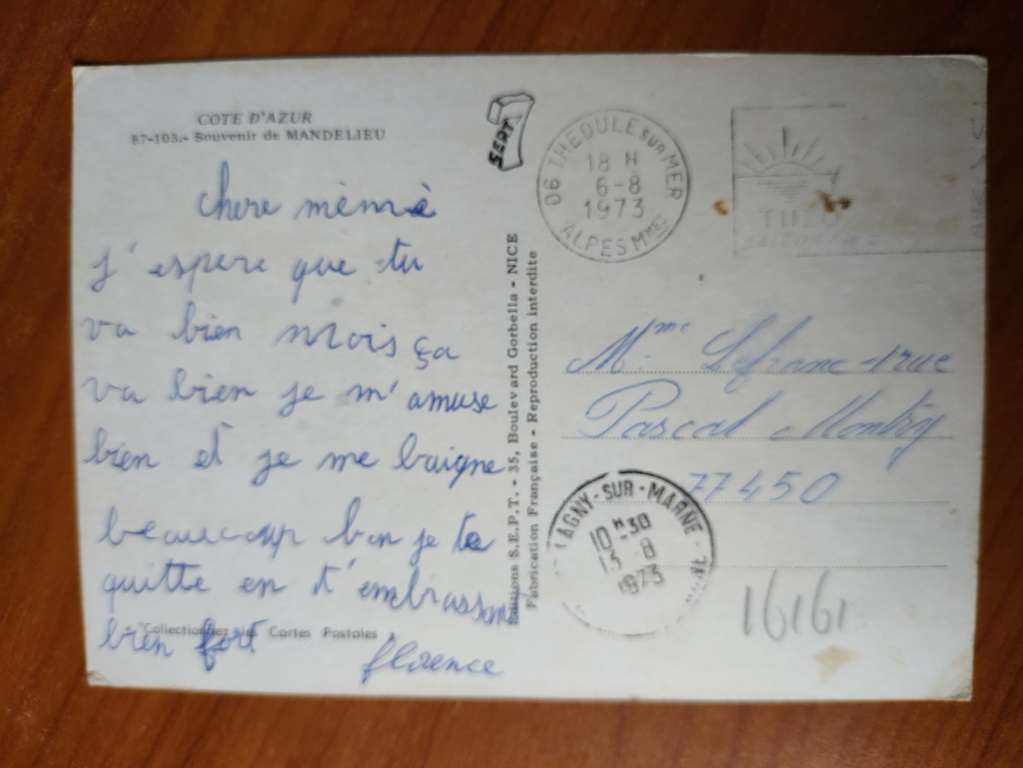 COTE D'AZUR
87-103.- Souvenir de MANDELIEU
chere mèmè
j'espere que tu
va bien mois ça
va bien je m'amuse
bien et je me baigne
beaucoup bon je te
quitte en t'embrassant
bien fort
florence
"Collectionnez les Cartes Postales
Editions S.E.P.T. - 35, Boulevard Gorbella - NICE
Fabrication Française - Reproduction interdite
SEPT
06 THEOULE SUR MER
18 H
6-8
1973
ALPES Mmes
THEO
Mme Lefranc rue
Pascal Montry
77450
LAGNY-SUR-MARNE
10 H 30
13 8
1973
16161